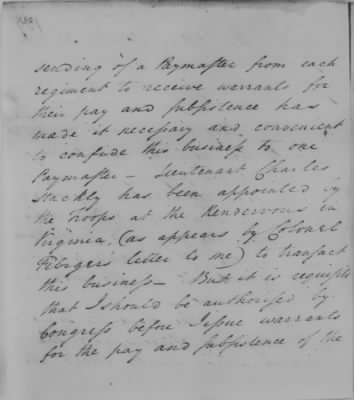 sending of a Paymaster from each
regiment to receive warrants for
their pay and subsistence has
made it necessary and convenient
to confide this business to one
Paymaster – Lieutenant Charles
Stockly has been appointed by
the troops at the Rendezvous in
Virginia, (as appears by Colonel
Febigers letter to me) to transact
this business – But it is requisite
that I should be authorised by
Congress before I issue warrants
for the pay and subsistence of the